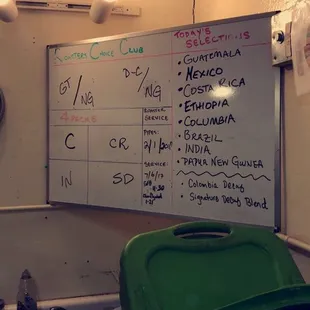 Roasters Choice Club
GT / NG
D-C / NG
4 PACKS
C
CR
IN
SD
ROASTER
SERVICE
SERVICE:
TODAY'S
SELECTIONS
• GUATEMALA
• MEXICO
• COSTA RICA
• ETHIOPIA
• COLUMBIA
• BRAZIL
• INDIA
• PAPUA NEW GUINEA
• Colombia Decaf
• Signature Decaf Blend